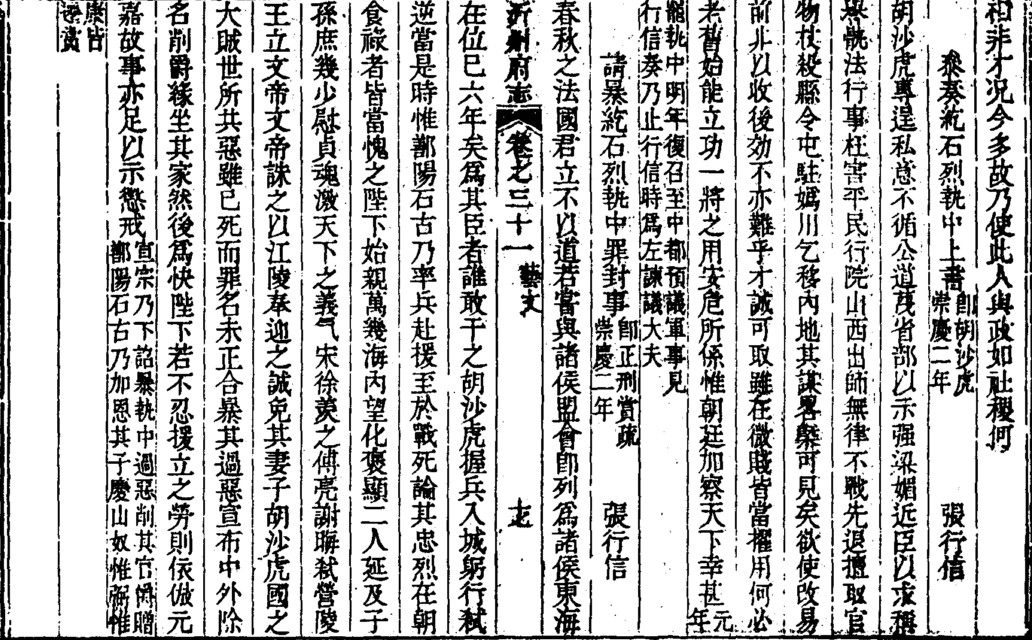 相非才況今多故乃使此人與政如社稷何
參奏紇石烈執中上書 即胡沙虎崇慶二年 張行信
胡沙虎專逞私意不循公道蔑省部以示强梁媚近臣以求稱
譽骫法行事枉害平民行院山西出師無律不戰先退擅取官
物杖殺縣令屯駐媯川乞移內地其謀畧槩可見矣欲使改易
前非以收後効不亦難乎才誠可取雖在微賤皆當擢用何必
老舊始能立功一將之用安危所係惟朝廷加察天下幸甚 元年
罷執中明年復召至中都預議軍事見
行信奏乃止行信時爲左諫議大夫
請暴紇石烈執中罪封事 即正刑賞疏崇慶二年 張行信
春秋之法國君立不以道若嘗與諸侯盟會即列爲諸侯東海
沂州府志 卷之三十一 藝文
在位已六年矣爲其臣者誰敢干之胡沙虎握兵入城躬行弒
逆當是時惟鄯陽石古乃率兵赴援至於戰死論其忠烈在朝
食祿者皆當愧之陛下始親萬幾海內望化褒顯二人延及子
孫庶幾少慰貞魂激天下之義气宋徐羨之傅亮謝晦弒營陵
王立文帝文帝誅之以江陵奉迎之誠免其妻子胡沙虎國之
大賊世所共惡雖已死而罪名未正合暴其過惡宣布中外除
名削爵緣坐其家然後爲快陛下若不忍援立之勞則依倣元
嘉故事亦足以示懲戒 宣宗乃下詔暴執中過惡削其官爵贈鄯陽石古乃加恩其子慶山奴惟弼惟
康皆